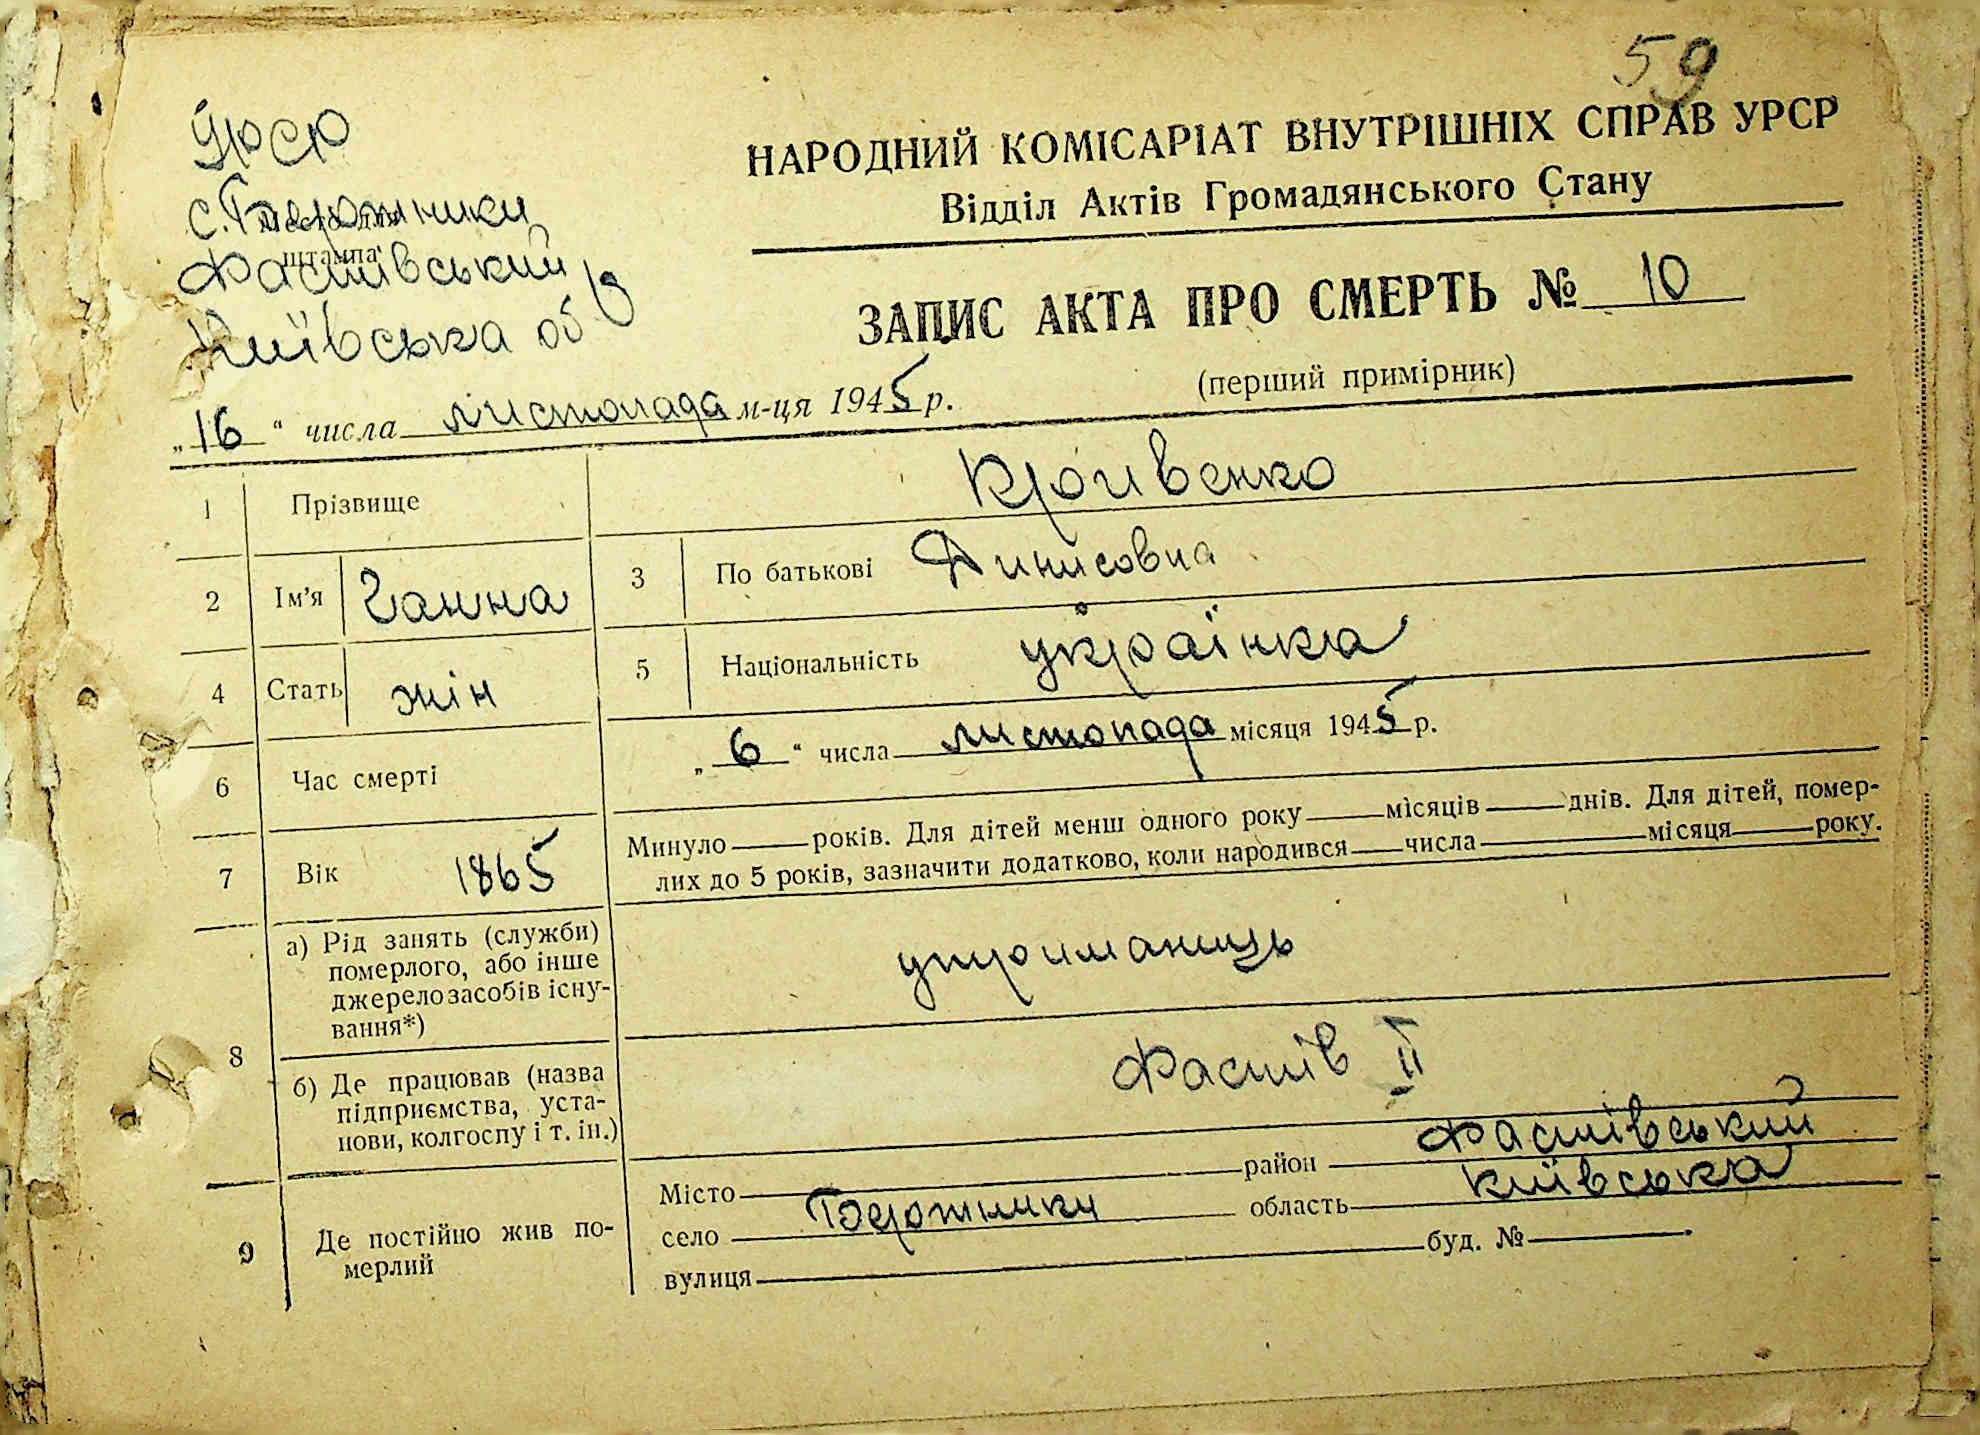 59
УРСР
с. Бертники
Місце для
штампа
Фастівський
Київська об
НАРОДНИЙ КОМІСАРІАТ ВНУТРІШНІХ СПРАВ УРСР
Відділ Актів Громадянського Стану
ЗАПИС АКТА ПРО СМЕРТЬ № 10
(перший примірник)
„16“ числа листопада м-ця 1945 р.
1 Прізвище Кривенко
2 Ім'я Ганна 3 По батькові Динисовна
4 Стать жін 5 Національність українка
6 Час смерті „6“ числа листопада місяця 1945 р.
7 Вік 1865 Минуло років. Для дітей менш одного року місяців днів. Для дітей, помер-
лих до 5 років, зазначити додатково, коли народився числа місяця року.
8 а) Рід занять (служби)
померлого, або інше
джерело засобів існу-
вання*)
утриманець
б) Де працював (назва
підприємства, уста-
нови, колгоспу і т. ін.)
Фастів II
9 Де постійно жив по-
мерлий
Місто район Фастівський
село область Київська
вулиця буд. №